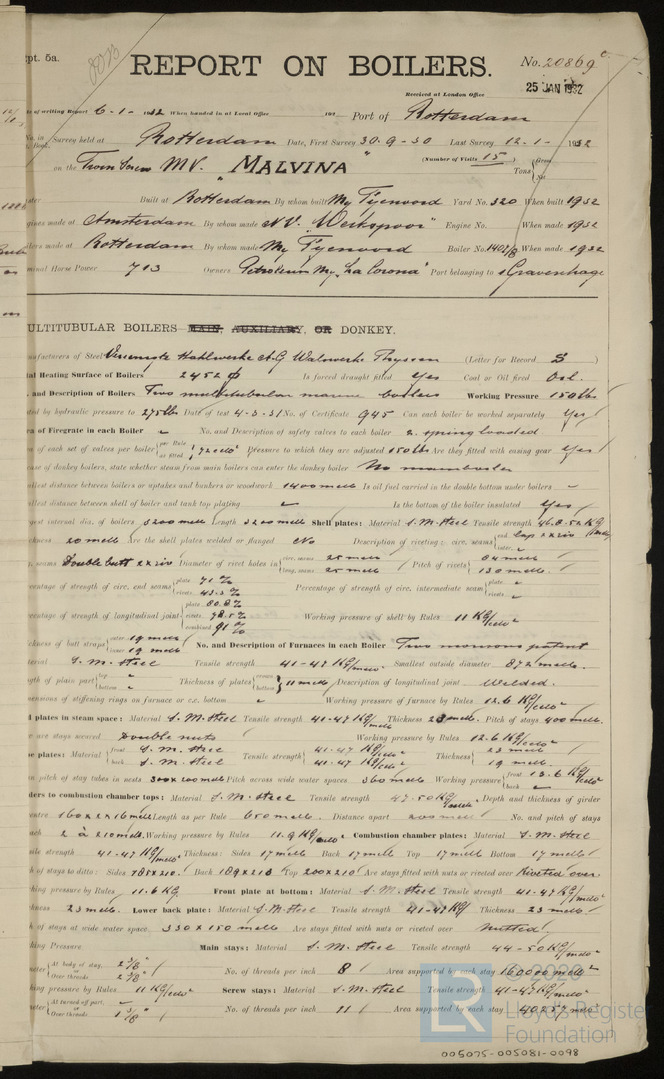 pt. 5a.
REPORT ON BOILERS.
No. 20869c
Received at London Office
25 JAN 1932
of writing Report 6-1-1932 When handed in at Local Office 192 Port of Rotterdam
No. in Survey held at Rotterdam Date, First Survey 30.9-30 Last Survey 12-1-1932
Book.
on the Twin Screw MV. "MALVINA" (Number of Visits 15) Tons { Gross Net
Built at Rotterdam By whom built My Fijenoord Yard No. 320 When built 1932
gines made at Amsterdam By whom made N.V. "Werkspoor" Engine No. When made 1932
lers made at Rotterdam By whom made My Fijenoord Boiler No. 1407/8 When made 1932
minal Horse Power 713 Owners Petroleum My. "La Corona" Port belonging to s'Gravenhage
ULTITUBULAR BOILERS MAIN, AUXILIARY, OR DONKEY.
nufacturers of Steel Vereinigte Stahlwerke A.G Walzwerke Thyssen (Letter for Record S)
al Heating Surface of Boilers 2452 Is forced draught fitted Yes Coal or Oil fired Oil.
and Description of Boilers Two multitubular marine boilers Working Pressure 150 lbs
ted by hydraulic pressure to 275 lbs Date of test 4-3-31 No. of Certificate 945 Can each boiler be worked separately Yes
ea of Firegrate in each Boiler No. and Description of safety valves to each boiler 2 spring loaded
ea of each set of valves per boiler { per Rule as fitted 72 Pressure to which they are adjusted 150 lbs Are they fitted with easing gear Yes
ase of donkey boilers, state whether steam from main boilers can enter the donkey boiler No main boiler
llest distance between boilers or uptakes and bunkers or woodwork 1400 Is oil fuel carried in the double bottom under boilers
llest distance between shell of boiler and tank top plating Is the bottom of the boiler insulated Yes
gest internal dia. of boilers 3200 Length 3200 Shell plates: Material S.M. Steel Tensile strength 46.8-52 KG
ckness 20 Are the shell plates welded or flanged No Description of riveting: circ. seams { end lap inter.
seams Double butt Diameter of rivet holes in { circ. seams 25 long. seams 25 Pitch of rivets { 84 130
centage of strength of circ. end seams { plate 71 % rivets 43.3 % Percentage of strength of circ. intermediate seam { plate rivets
centage of strength of longitudinal joint { plate 80.8 % rivets 78.5 % combined 91 % Working pressure of shell by Rules 11 KG
ckness of butt straps { outer 19 inner 19 No. and Description of Furnaces in each Boiler Two morisons patent
terial S.M. Steel Tensile strength 41-47 KG Smallest outside diameter 872
gth of plain part { top bottom Thickness of plates { crown bottom } 11 Description of longitudinal joint Welded.
mensions of stiffening rings on furnace or c.c. bottom Working pressure of furnace by Rules 12.6 KG
d plates in steam space: Material S.M. Steel Tensile strength 41-47 KG Thickness 23 Pitch of stays 400
w are stays secured Double nuts Working pressure by Rules 12.6 KG
be plates: Material { front S.M. Steel back S.M. Steel Tensile strength { 41-47 KG 41-47 KG Thickness { 23 19
n pitch of stay tubes in nests 300x200 Pitch across wide water spaces 360 Working pressure { front 13.6 KG back
ders to combustion chamber tops: Material S.M. Steel Tensile strength 47-50 KG Depth and thickness of girder
entre 160x2x16 Length as per Rule 650 Distance apart 200 No. and pitch of stays
ach 2 à 210 Working pressure by Rules 11.9 KG Combustion chamber plates: Material S.M. Steel
sile strength 41-47 KG Thickness: Sides 17 Back 17 Top 17 Bottom 17
h of stays to ditto: Sides 185x210. Back 189x213 Top 200x210 Are stays fitted with nuts or riveted over Riveted over.
king pressure by Rules 11.6 KG Front plate at bottom: Material S.M. Steel Tensile strength 41-47 KG
kness 23 Lower back plate: Material S.M. Steel Tensile strength 41-47 KG Thickness 23
h of stays at wide water space 330x150 Are stays fitted with nuts or riveted over Nutted
king Pressure Main stays: Material S.M. Steel Tensile strength 44-50 KG
meter { At body of stay, 2 3/8" or Over threads 2 5/8" No. of threads per inch 8 Area supported by each stay 160000
king pressure by Rules 11 KG Screw stays: Material S.M. Steel Tensile strength 41-47 KG
meter { At turned off part, or Over threads 1 5/8" No. of threads per inch 11 Area supported by each stay 40257
© 202
LR Lloyd's Register
Foundation
005075-005081-0098